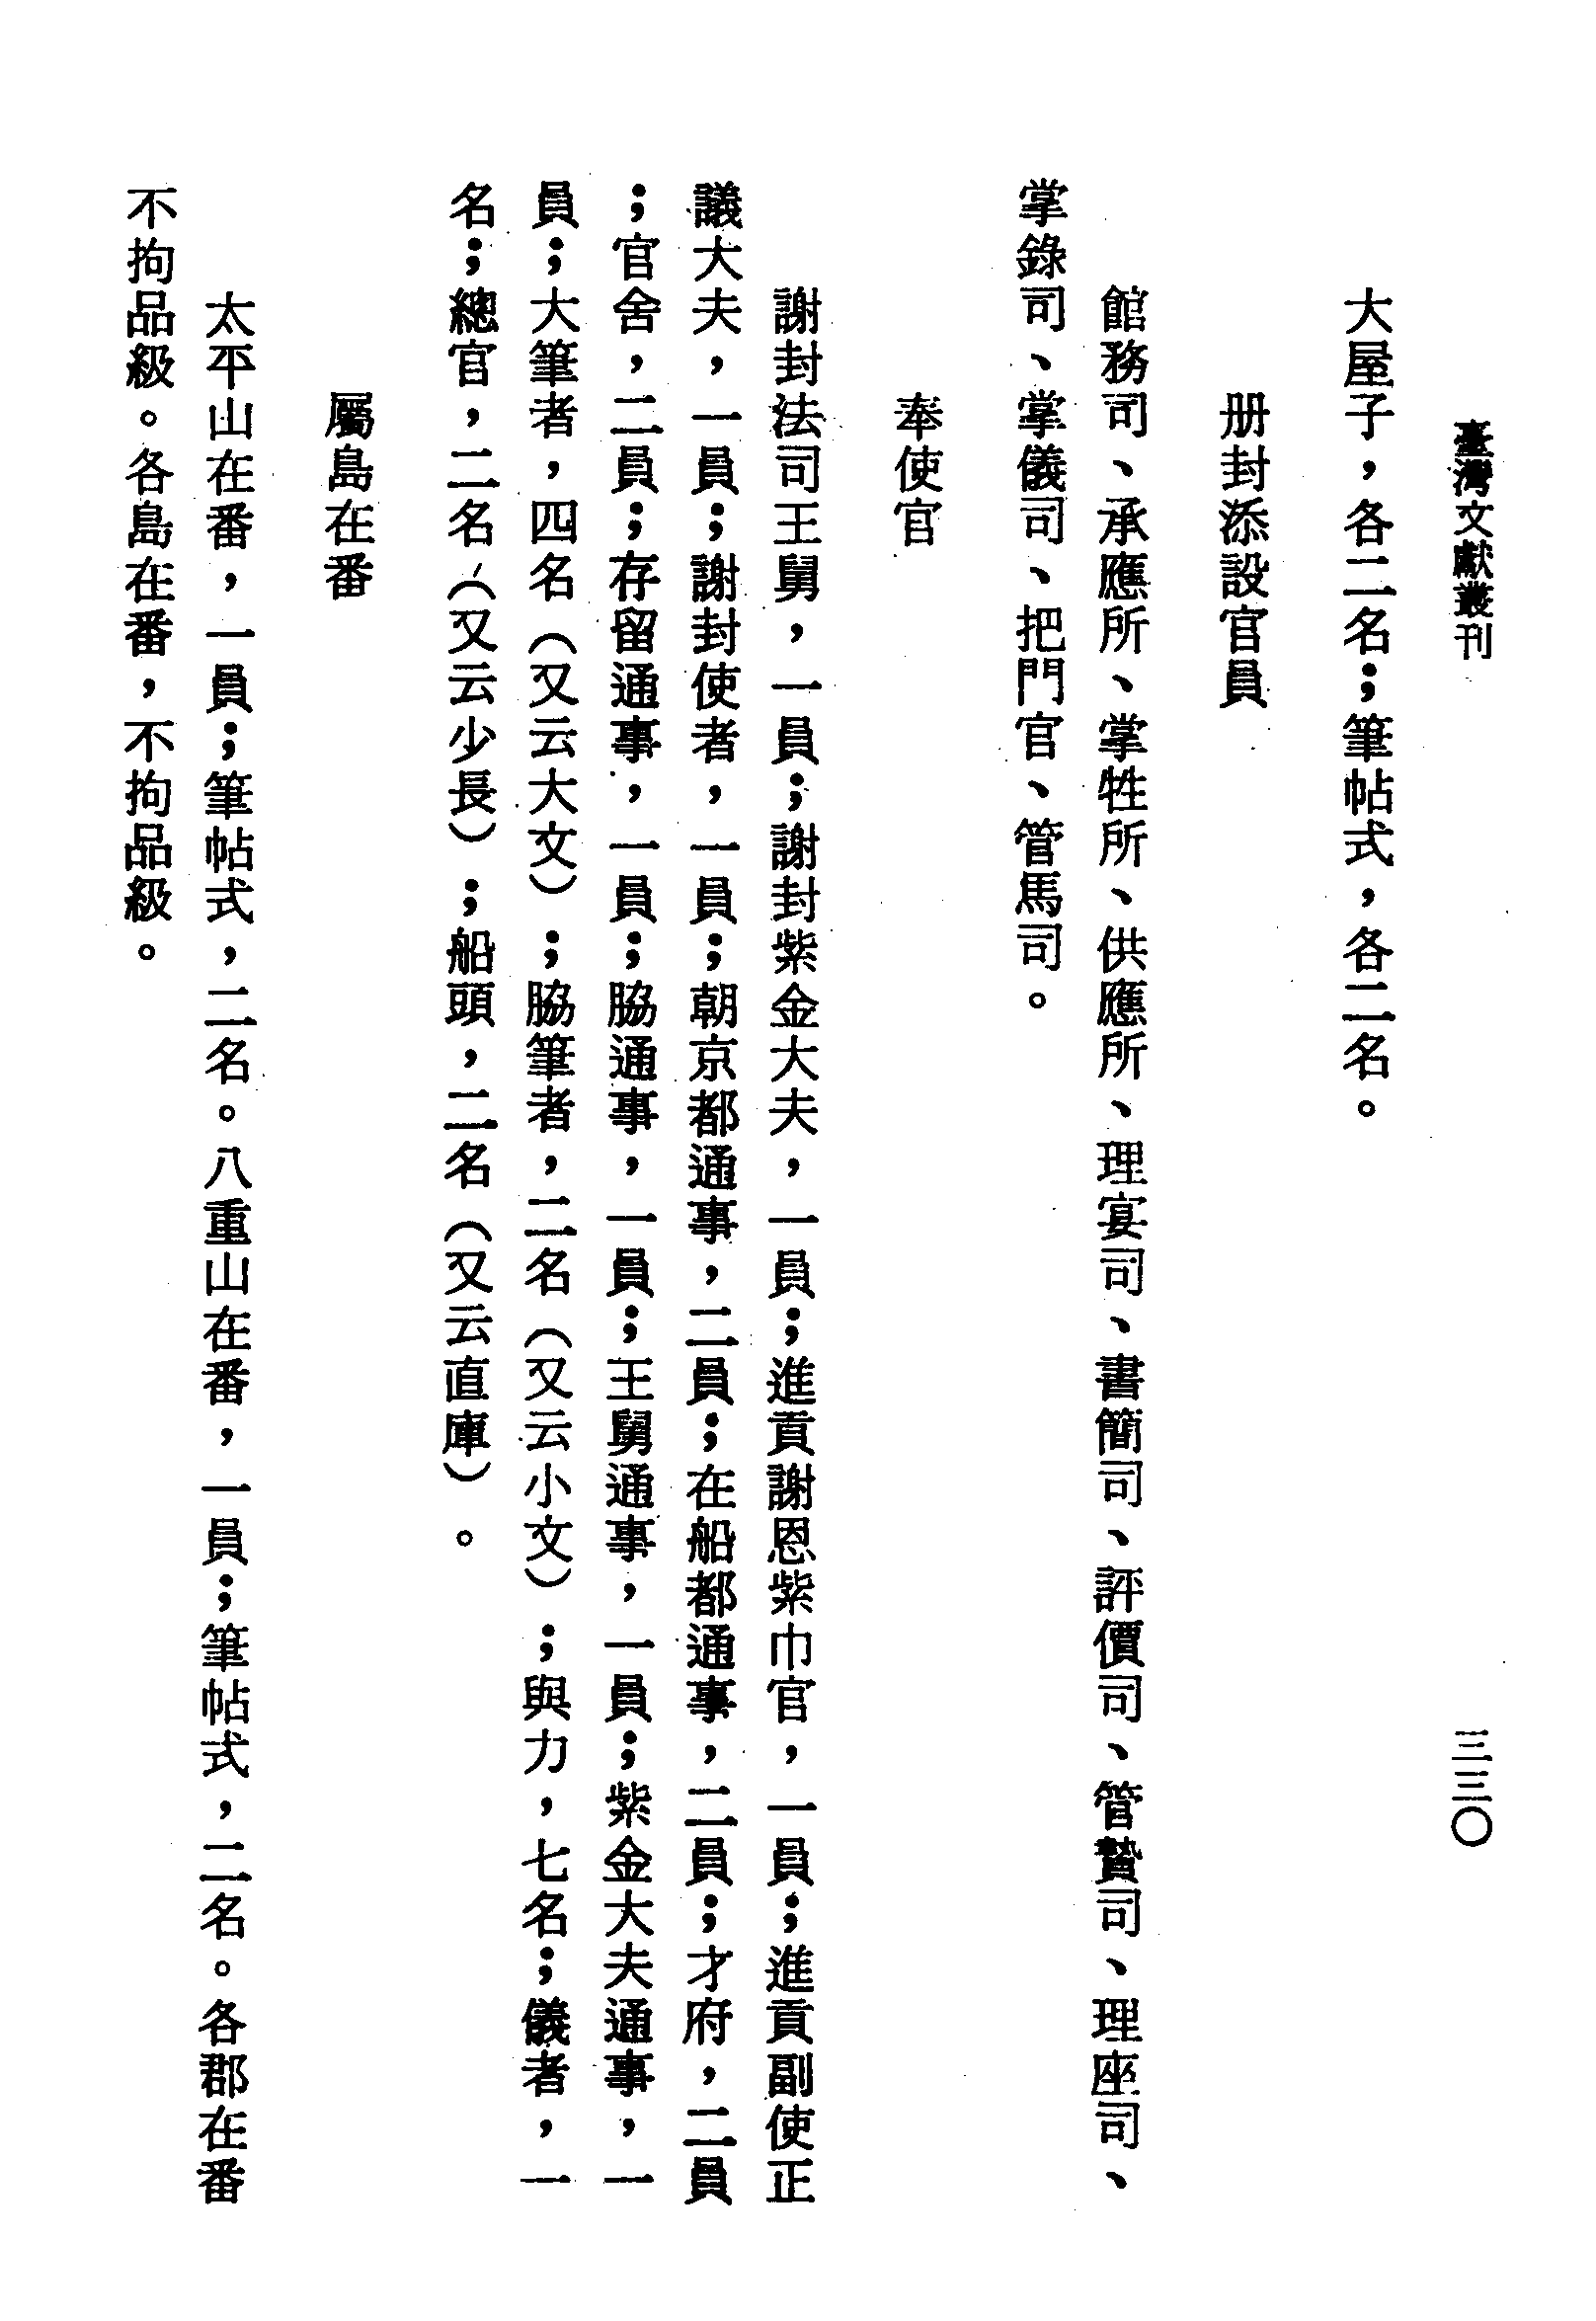 臺灣文獻叢刊
三三〇
大屋子，各二名；筆帖式，各二名。
册封添設官員
館務司、承應所、掌牲所、供應所、理宴司、書簡司、評價司、管贄司、理座司、
掌錄司、掌儀司、把門官、管馬司。
奉使官
謝封法司王舅，一員；謝封紫金大夫，一員；進貢謝恩紫巾官，一員；進貢副使正
議大夫，一員；謝封使者，一員；朝京都通事，二員；在船都通事，二員；才府，二員
；官舍，二員；存留通事，一員；脇通事，一員；王舅通事，一員；紫金大夫通事，一
員；大筆者，四名（又云大文）；脇筆者，二名（又云小文）；與力，七名；儀者，一
名；總官，二名（又云少長）；船頭，二名（又云直庫）。
屬島在番
太平山在番，一員；筆帖式，二名。八重山在番，一員；筆帖式，二名。各郡在番
不拘品級。各島在番，不拘品級。